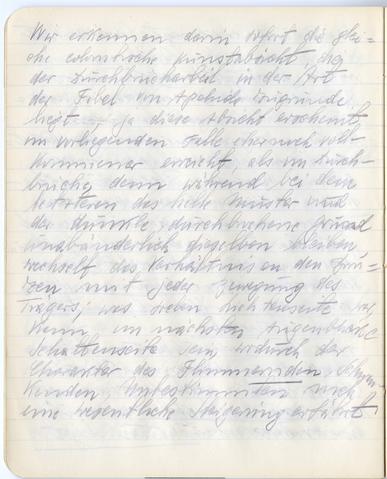 Wir erkennen darin sofort die glei-
che coloristische Kunstabsicht, die
der Durchbrucharbeit in der Art
der Fibel von Apahida zugrunde
liegt – ja diese Absicht erscheint
im vorliegenden Falle eher noch voll-
kommener erreicht, als im Durch-
bruch; denn während bei dem
letzteren das helle Muster und
der dunkle, durchbrochene Grund
unabänderlich dieselben bleiben
wechselt das Verhältnis an den
mit jeder Bewegung des
Trägers; was soeben Lichtseite war,
kann im nächsten Augenblicke
Schattenseite sein, wodurch der
Charakter des Flimmernden,
Unbestimmten noch
eine wesentliche Steigerung erfährt